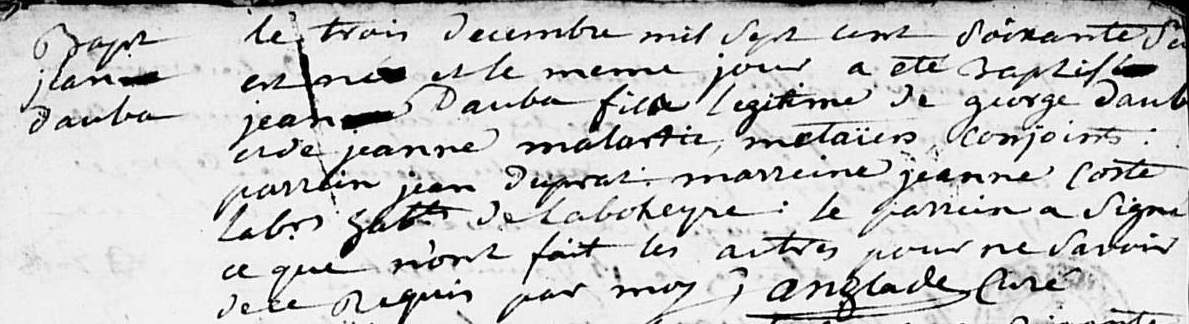 Bapt
jean
dauba
le trois decembre mil Sept cent Soixante
est né et le meme jour a été Baptisé
jean Dauba fils legitime de george daub
et de jeanne malartic, metaiers conjoints.
parrein jean duprat. marreine jeanne Coste
labrs habts de laboheyre. le parrein a Signé
ce que n'ont fait les autres pour ne Savoir
de ce Requis par moy anglade, Curé